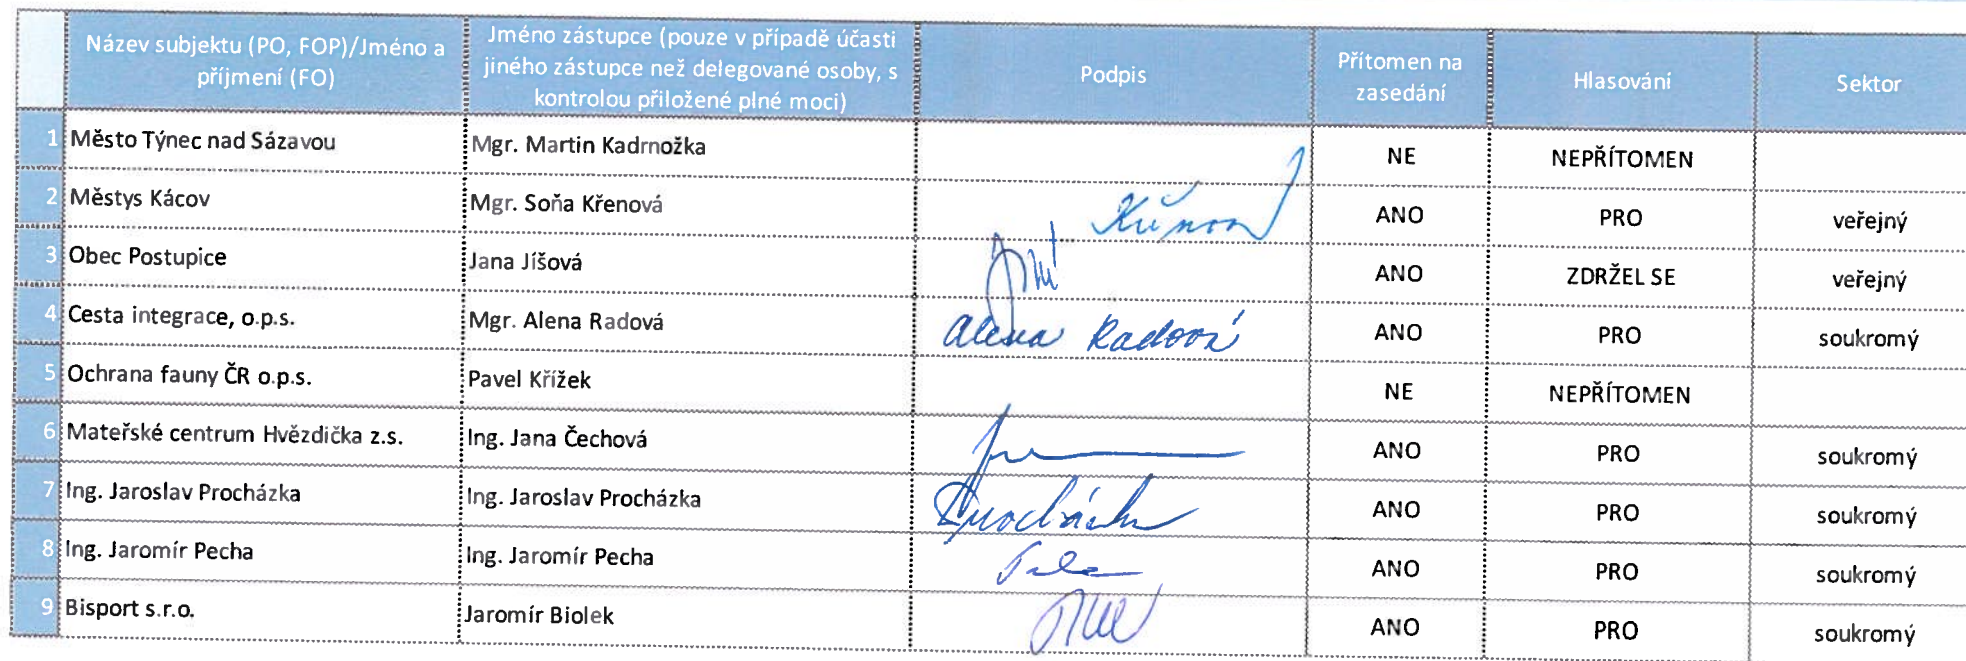 Název subjektu (PO, FOP)/Jméno a příjmení (FO) Jméno zástupce (pouze v případě účasti jiného zástupce než delegované osoby, s kontrolou přiložené plné moci) Podpis Přítomen na zasedání Hlasování Sektor
1 Město Týnec nad Sázavou Mgr. Martin Kadrnožka NE NEPŘÍTOMEN
2 Městys Kácov Mgr. Soňa Křenová ANO PRO veřejný
3 Obec Postupice Jana Jíšová ANO ZDRŽEL SE veřejný
4 Cesta integrace, o.p.s. Mgr. Alena Radová Alena Radová ANO PRO soukromý
5 Ochrana fauny ČR o.p.s. Pavel Křížek NE NEPŘÍTOMEN
6 Mateřské centrum Hvězdička z.s. Ing. Jana Čechová ANO PRO soukromý
7 Ing. Jaroslav Procházka Ing. Jaroslav Procházka ANO PRO soukromý
8 Ing. Jaromír Pecha Ing. Jaromír Pecha ANO PRO soukromý
9 Bisport s.r.o. Jaromír Biolek ANO PRO soukromý